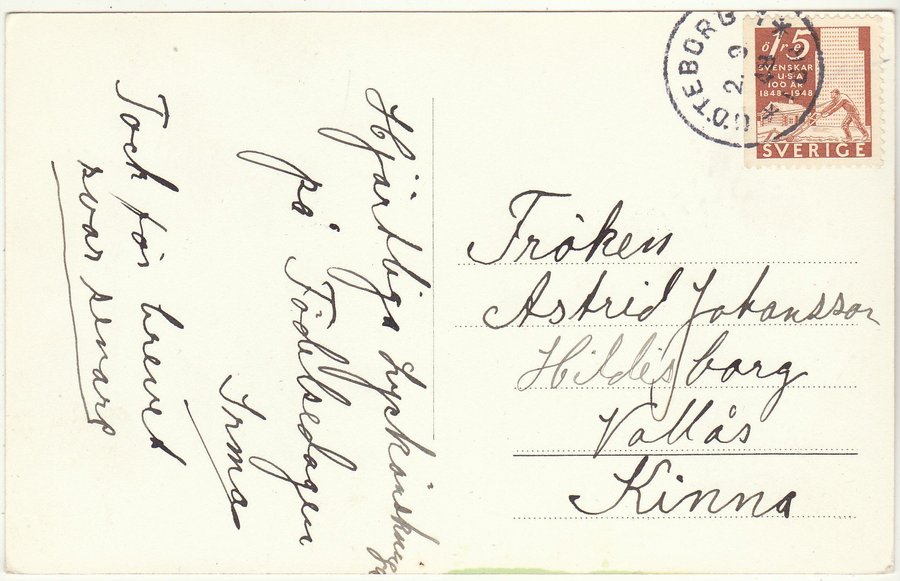 Hjärtliga Lyckönskningar
på Födelsedagen
Irma
Tack för brevet
svar senare
GÖTEBORG 1
15
öre
SVENSKAR
U·S·A
100 ÅR
1848-1948
SVERIGE
Fröken
Astrid Johansson
Hildisborg
Vallås
Kinna